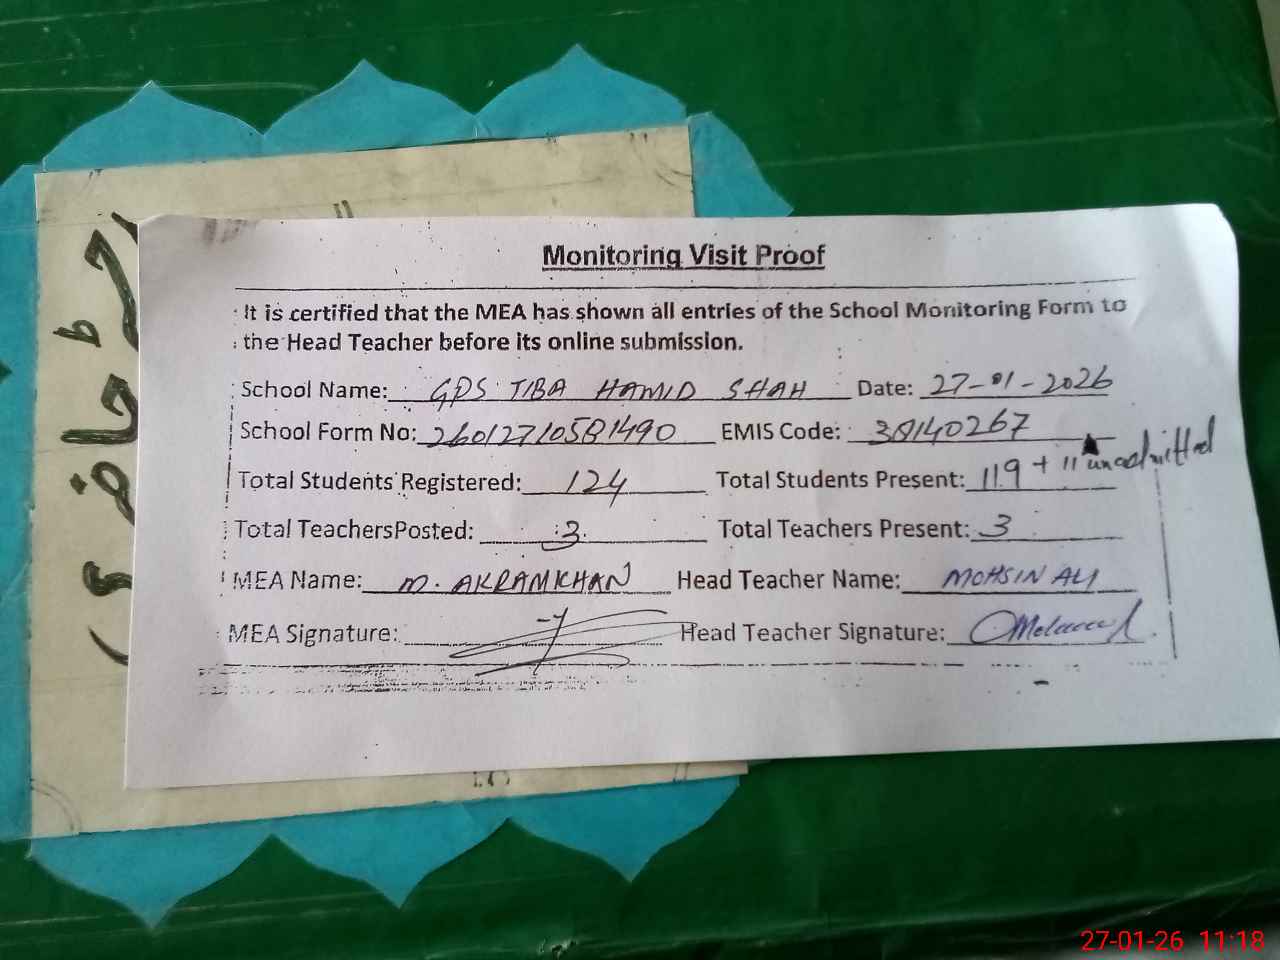 Monitoring Visit Proof
It is certified that the MEA has shown all entries of the School Monitoring Form to
the Head Teacher before its online submission.
School Name: GPS TIBA HAMID SHAH Date: 27-01-2026
School Form No: 26012710581490 EMIS Code: 38140267
Total Students Registered: 124 Total Students Present: 119 + 11 unadmitted
Total TeachersPosted: 3 Total Teachers Present: 3
MEA Name: M. AKRAMKHAN Head Teacher Name: MOHSIN ALI
MEA Signature: Head Teacher Signature:
27-01-26 11:18